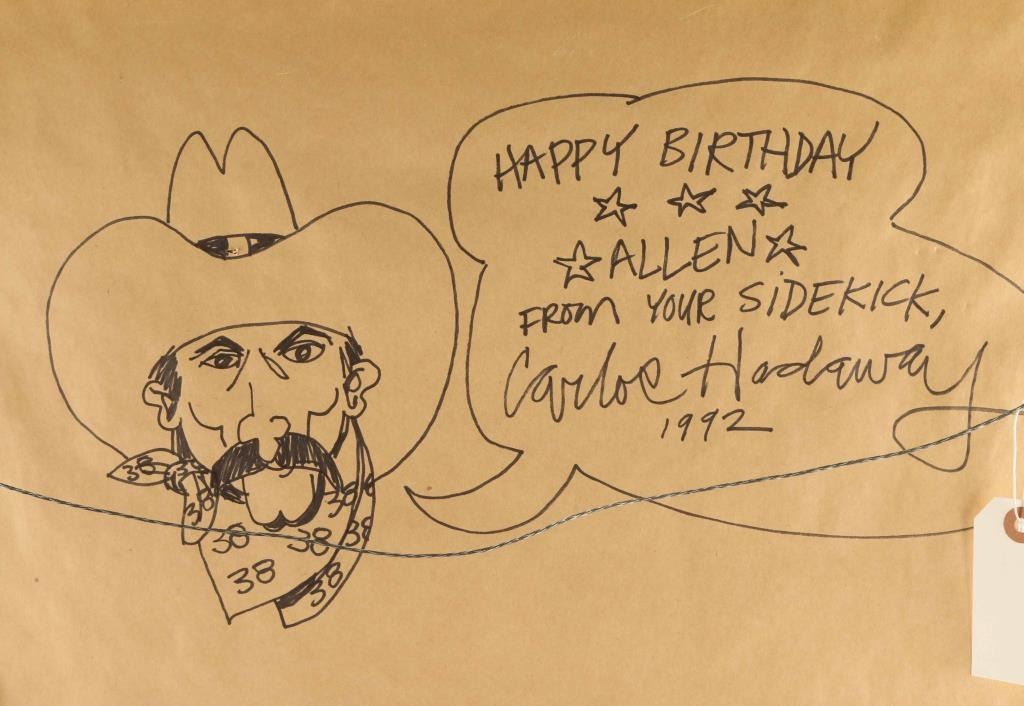 HAPPY BIRTHDAY
ALLEN
FROM YOUR SIDEKICK,
Carlos Hadaway
1992
38
38
38
38
38
38
38
38
38